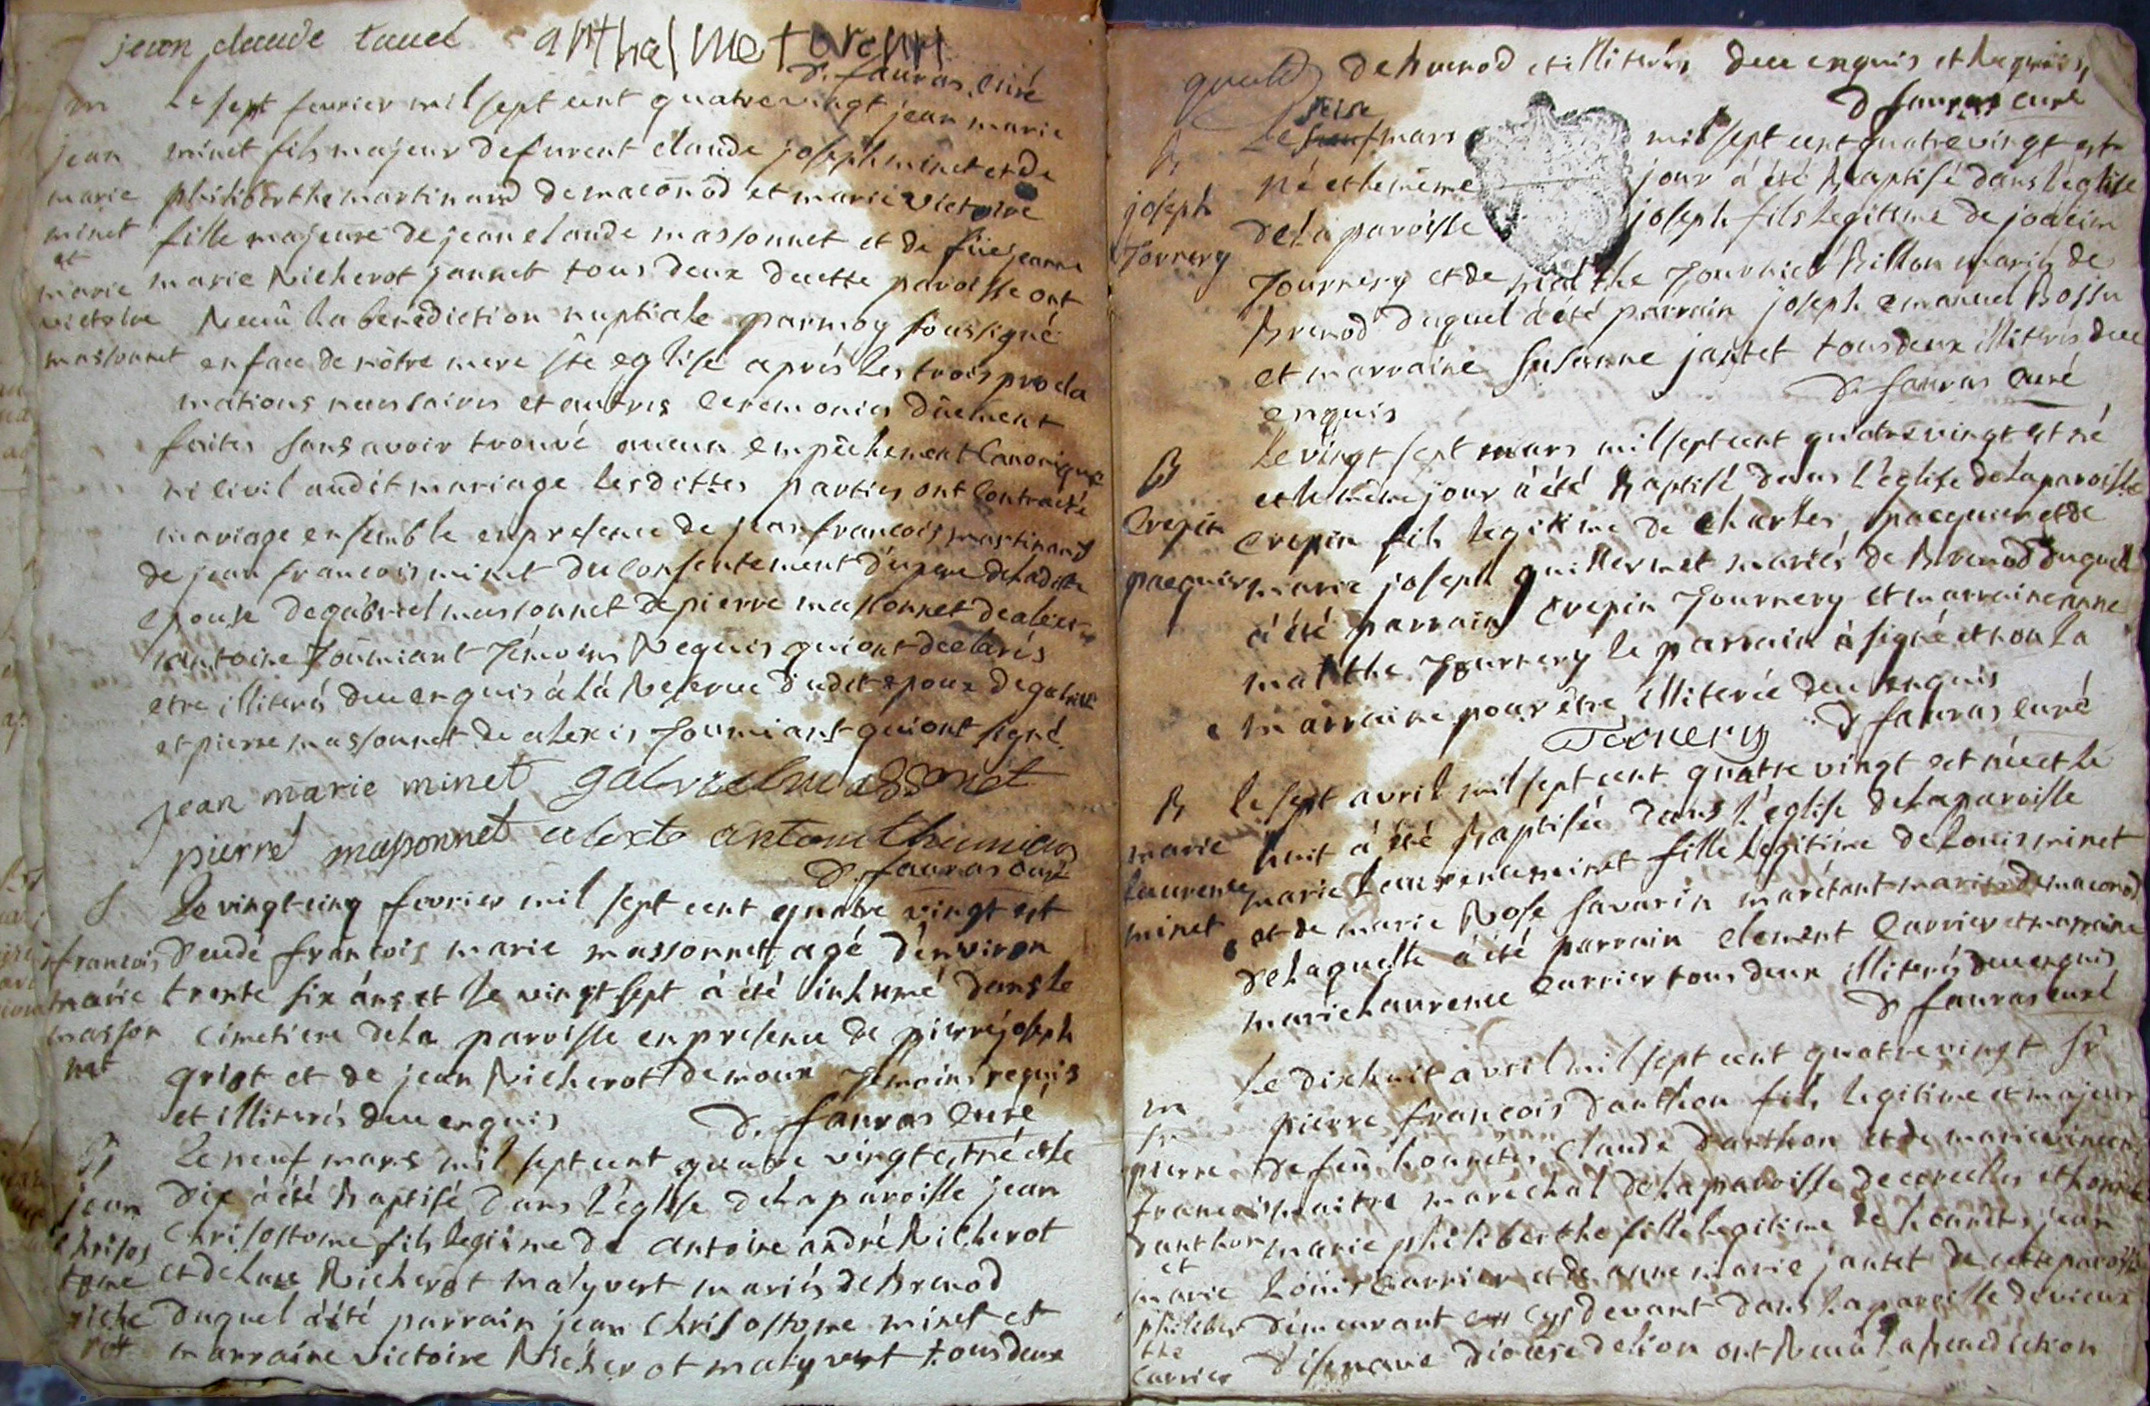 jean claude tauel anthelme tvrenn
d. fauras curé
m Le sept fevrier mil sept cent quatre vingt jean marie
jean minet fils majeur de furent claude joseph minet et de
marie philiberthe martinand de maconod et marie victoire
minet fille majeure de jean claude massonnet et de füe jeanne
et
marie marie Richerot jannet tous deux de cette paroisse ont
victoire Receû la benediction nuptiale par moy soussigné
massonnet en face de nôtre mere ste eglise aprés les trois procla
mations necessaires et autres ceremonies dûement
faites sans avoir trouvé aucun empêchement canonique
ni civil audit mariage lesdittes parties ont contracté
mariage ensemble en presence de jean francois martinand
de jean francois minet du consentement du pere de ladite
epouse de gabriel massonnet de pierre massonnet de alexis
antoine Joumiant témoins Requis qui ont declarés
etre illiterés de ce enquis à la Reserve dudit epoux de gabriel
et pierre massonnet de alexis Joumiant qui ont signé
jean marie minet gabriel massonet
pierre massonnet
d. fauras curé
S Le vingt cinq fevrier mil sept cent quatre vingt est
francois decudé francois marie massonnet agé d'environ
marie trente six ans et le vingt sept à été inhumé dans le
masson cimetiere de la paroisse en presence de pierre joseph
net griot et de jean Richerot demoux temoins requis
et illiterés de ce enquis d. fauras curé
B Le neuf mars mil sept cent quatre vingt est né et le
jean dix à été Baptisé dans l'eglise de la paroisse jean
chrisos chrisostome fils legitime de antoine andré Richerot
tome et de luce Richerot malyvert mariés de Brenod
riche duquel à été parrain jean chrisostome minet et
rot marraine victoire Richerot malyvert tous deux
de brenod et illiterés de ce enquis et Requis
d fauras curé
seise
B Le mars mil sept cent quatre vingt est
né et le même jour à été Baptisé dans l'eglise
joseph de la paroisse joseph fils legitime de joachim
Tornery Journery et de marthe Journier Billon mariés de
Brenod duquel à été parrain joseph emanuel Bossu
et marraine Susanne jantet tous deux illiterés de ce
enquis d. fauras curé
B Le vingt sept mars mil sept cent quatre vingt est né
et le même jour à été Baptisé dans l'eglise de la paroisse
Crepin Crepin fils legitime de Charles pacquier et de
pacquier marie joseph guillermet mariés de Brenod duquel
à été parrain Crepin Journery et marraine anne
marthe Journery le parrain à signé et non la
marraine pour être illiterée de ce enquis
Tornery d fauras curé
B Le sept avril mil sept cent quatre vingt est née et le
marie huit à été Baptisée dans l'eglise de la paroisse
laurence marie laurence minet fille legitime de Louis minet
minet et de marie Rose Savarin marétant mariés de maconod
de laquelle à été parrain clement Carrier et marraine
marie laurence Carrier tous deux illiterés de ce enquis
d fauras curé
Le dix huit avril mil sept cent quatre vingt sr
m pierre francois danthon fils legitime et majeur
sr
pierre de feû honnetes claude danthon et de marie vincen
francois maitre marechal de la paroisse de corcelles et honnete
danthon marie philiberthe fille legitime de honnetes jean
et
marie Louis Carrier et de anne marie jantet de cette paroisse
philiber demeurant cy devant dans la paroisse de vieux
the
Carrier d'isenave diocese de lion ont Receû la benediction